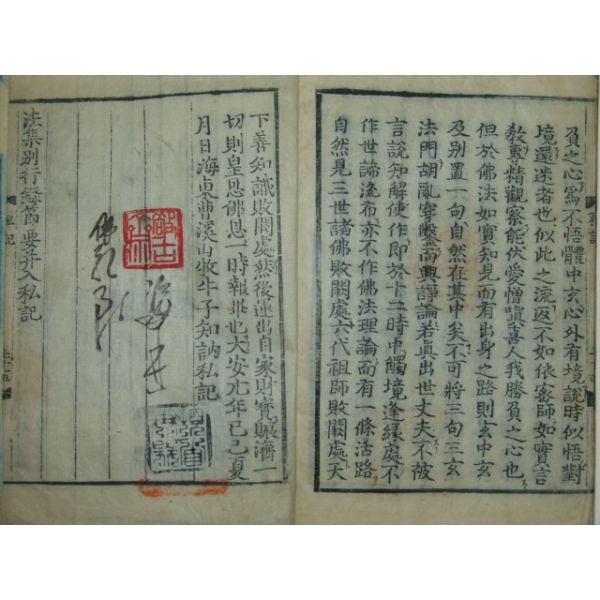 負之心爲不悟體中玄心外有境說時似悟對
境還迷者也似此之流返不如依密師如實言
敎專精觀察能伏愛憎嗔喜人我勝負之心也
但於佛法如實知見而有出身之路則玄中玄
及別置一句自然在其中矣不可將三句三玄
法門胡亂穿鑿而興諍論若眞出世丈夫不被
言說知解使作即於十二時中觸境逢緣處不
作世諦流布亦不作佛法理論而有一條活路
自然見三世諸佛敗闕處六代祖師敗闕處天
下善知識敗闕處然後運出自家財寶賑濟一
切則皇恩佛恩一時報畢也大安元年己巳夏
月日海東曹溪山牧牛子知訥私記
法集別行錄節要幷入私記
私記